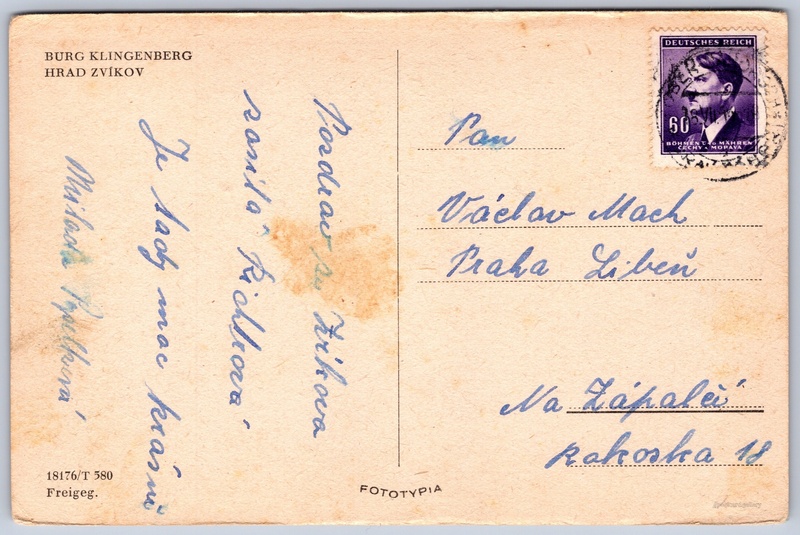 BURG KLINGENBERG
HRAD ZVÍKOV
Pozdrav ze Zvíkova
Richtrová
Je tady moc krásně
Milada
18176/T 580
Freigeg.
FOTOTYPIA
DEUTSCHES REICH
60
BÖHMEN U. MÄHREN
ČECHY A MORAVA
Pan
Václav Mach
Praha Libeň
Na Zápalčí
Rakoska 18